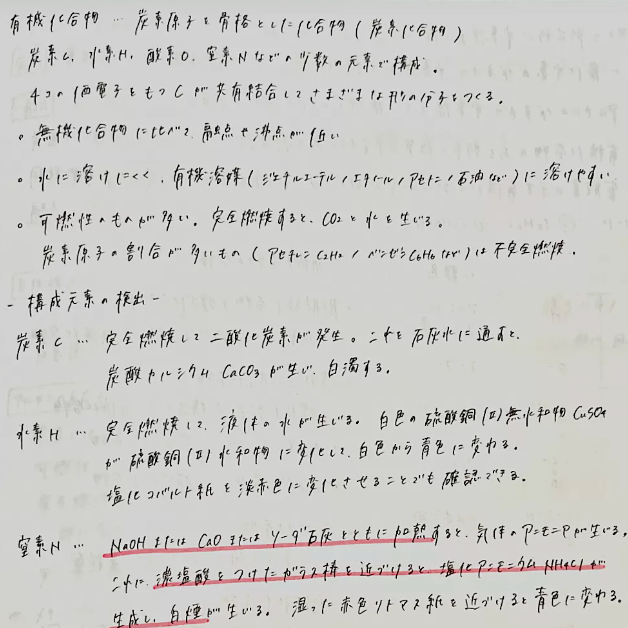 有機化合物 … 炭素原子を骨格とした化合物(炭素化合物)
炭素C、水素H、酸素O、窒素Nなどの少数の元素で構成。
4コの価電子をもつCが共有結合してさまざまな形の分子をつくる。
○ 無機化合物に比べて、融点や沸点が低い
○ 水に溶けにくく、有機溶媒(ジエチルエーテル/エタノール/アセトン/石油など)に溶けやすい
○ 可燃性のものが多い。完全燃焼すると、CO2と水を生じる。
炭素原子の割合が多いもの(アセチレンC2H2/ベンゼンC6H6など)は不完全燃焼。
- 構成元素の検出 -
炭素C … 完全燃焼して二酸化炭素が発生。これを石灰水に通すと、
炭酸カルシウムCaCO3が生じ、白濁する。
水素H … 完全燃焼して、液体の水が生じる。白色の硫酸銅(II)無水和物CuSO4
が硫酸銅(II)水和物に変化して、白色から青色に変わる。
塩化コバルト紙を淡赤色に変化させることでも確認できる。
窒素N … NaOHまたはCaOまたはソーダ石灰とともに加熱すると、気体のアンモニアが生じる。
これに、濃塩酸をつけたガラス棒を近づけると、塩化アンモニウムNH4Clが
生成し、白煙が生じる。湿った赤色リトマス紙を近づけると青色に変わる。